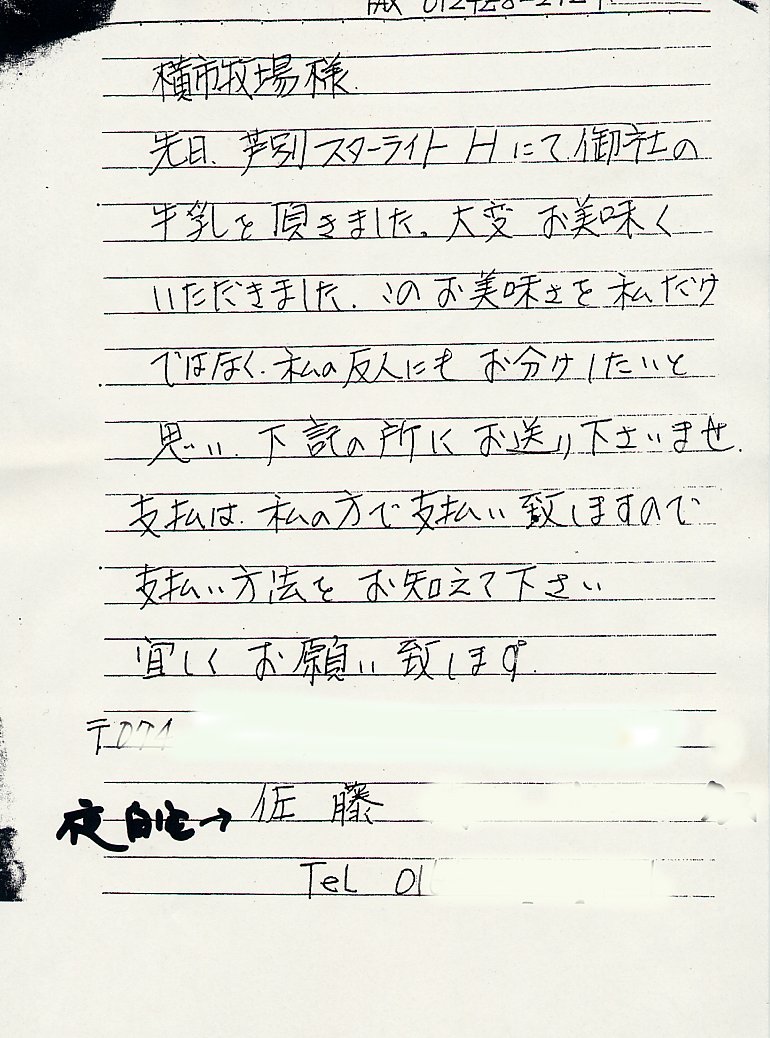 FAX 012428-2724
横市牧場様.
先日.芦別スターライトHにて.御社の
牛乳を頂きました。大変 お美味く
いただきました.このお美味さを私だけ
ではなく.私の友人にも お分けしたいと
思い.下記の所に お送り下さいませ.
支払は.私の方で支払い致しますので
支払い方法を お知えて下さい
宜しく お願い致します.
〒074
夜自宅→ 佐藤
TeL 01